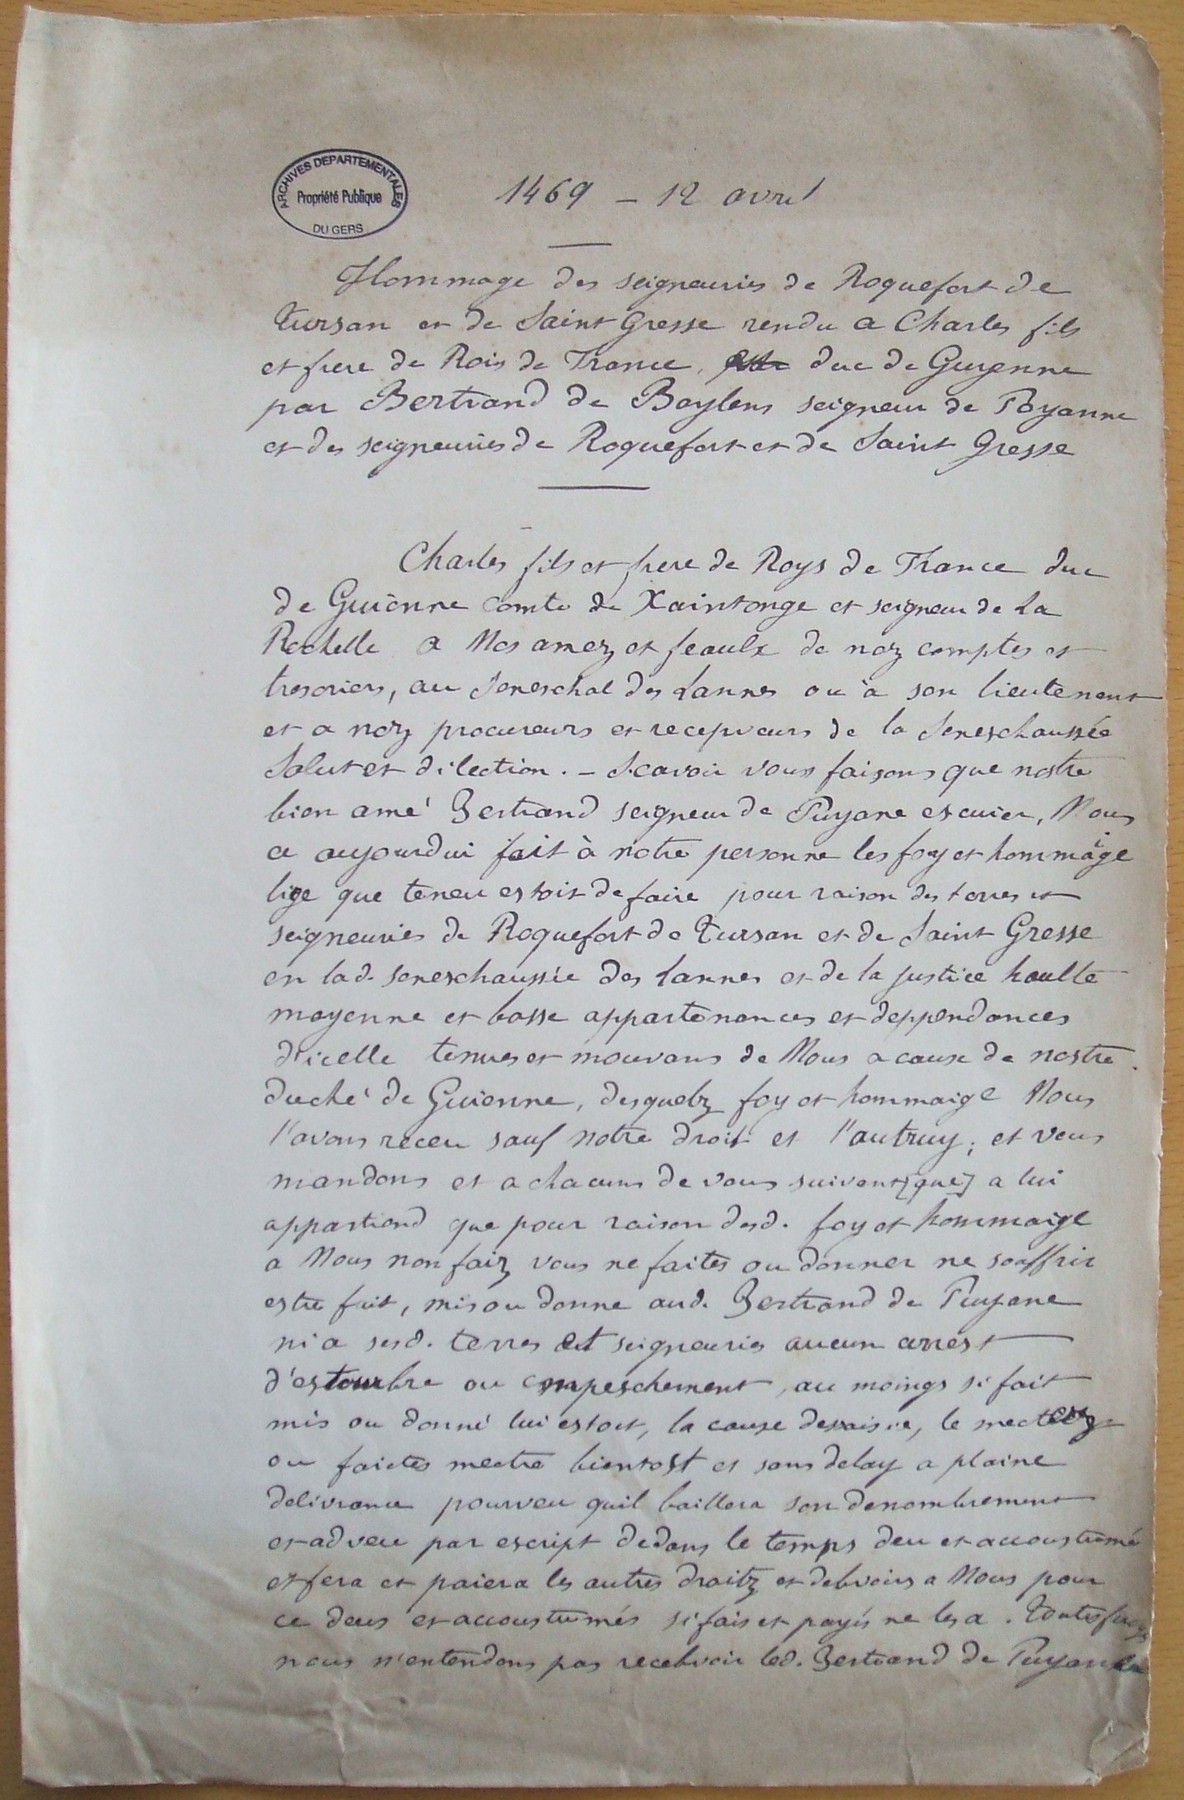 ARCHIVES DEPARTEMENTALES
Propriété Publique
DU GERS
1469 – 12 avril
Hommage des seigneuries de Roquefort de
Tursan et de Saint Gresse rendu a Charles fils
et frere de Rois de France, duc de Guyenne
par Bertrand de Baylens seigneur de Poyanne
et des seigneuries de Roquefort et de Saint Gresse
Charles fils et frere de Roys de France duc
de Guienne comte de Xaintonge et seigneur de La
Rochelle a Nos amez et feaulx de noz comptes et
tresoriers, au Seneschal des Lannes ou à son lieutenent
et a noz procureurs et recepveurs de la Seneschaussée
Salut et dilection. – Scavoir vous faisons que nostre
bien amé Bertrand seigneur de Puyane escuier, Nous
a aujourdui fait à notre personne les foy et hommaige
lige que teneu estoit de faire pour raison des terres et
seigneuries de Roquefort de Tursan et de Saint Gresse
en lad. seneschaussée des Lannes et de la justice haulte
moyenne et basse appartenances et deppendances
d'icelle tenues et mouvans de Nous a cause de nostre
duché de Guienne, desquelz foy et hommaige Nous
l'avons receu sauf notre droit et l'autruy; et vous
mandons et a chacuns de vous suivent [que] a lui
appartiend que pour raison desd. foy et hommaige
a Nous non faiz vous ne faites ou donner ne souffrir
estre fait, mis ou donne aud. Bertrand de Puyane
ni a sesd. terres et seigneuries aucun arrest
d'estourbre ou empeschement, au moings si fait
mis ou donné lui estoit, la cause dessaisie, le mectez
ou faictes mectre bientost et sans delay a plaine
delivrance pourveu quil baillera son denombrement
et adveu par escript dedans le temps deu et accoustumé
et fera et paiera les autres droitz et debvoirs a Nous pour
ce deus et accoustumés si fais et payés ne les a. Toutesfoys
nous n'entendons pas recebvoir led. Bertrand de Puyane